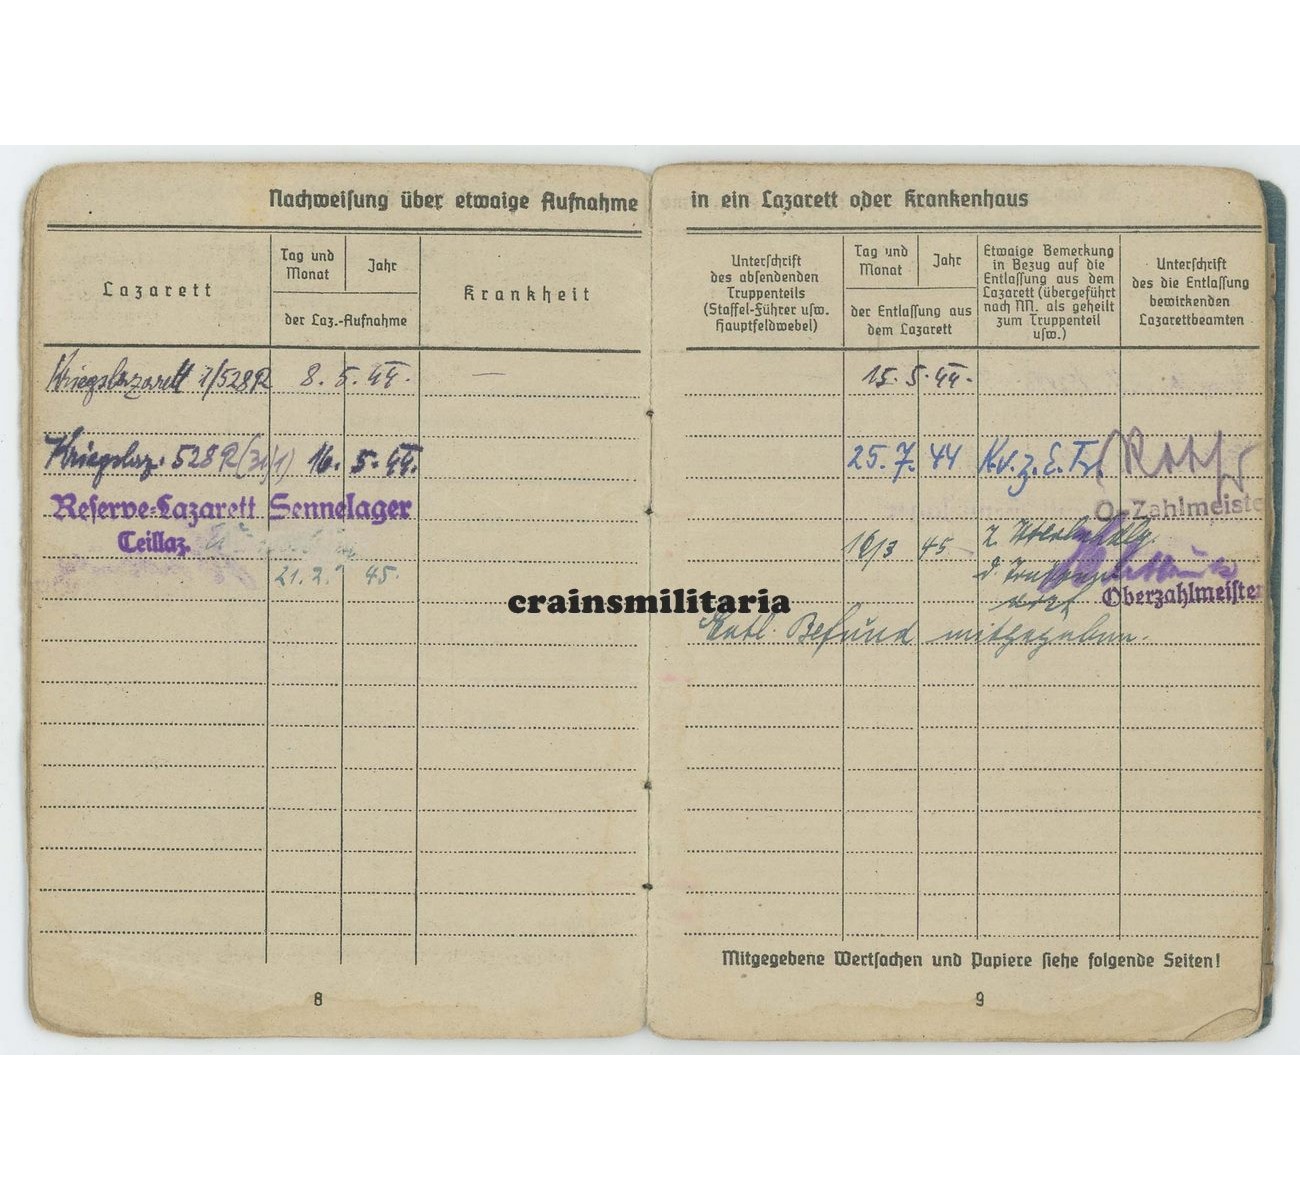 Nachweisung über etwaige Aufnahme in ein Lazarett oder Krankenhaus
Lazarett
Tag und Monat
Jahr
der Laz.-Aufnahme
Krankheit
Unterschrift
des absendenden
Truppenteils
(Staffel-Führer usw.
Hauptfeldwebel)
Tag und Monat
Jahr
der Entlassung aus
dem Lazarett
Etwaige Bemerkung
in Bezug auf die
Entlassung aus dem
Lazarett (übergeführt
nach NN. als geheilt
zum Truppenteil
usw.)
Unterschrift
des die Entlassung
bewirkenden
Lazarettbeamten
Kriegslazarett 1/528 R 8. 5. 44. — 15. 5. 44.
Kriegslaz. 528 R 16. 5. 44. 25. 7. 44 K.v. z. E. Tr.
Reserve-Lazarett Sennelager
O.-Zahlmeister
Teillaz.
21. 2. 45. 16/3 45
Oberzahlmeister
crainsmilitaria
Entl. Befund mitgegeben.
Mitgegebene Wertsachen und Papiere siehe folgende Seiten!
8
9